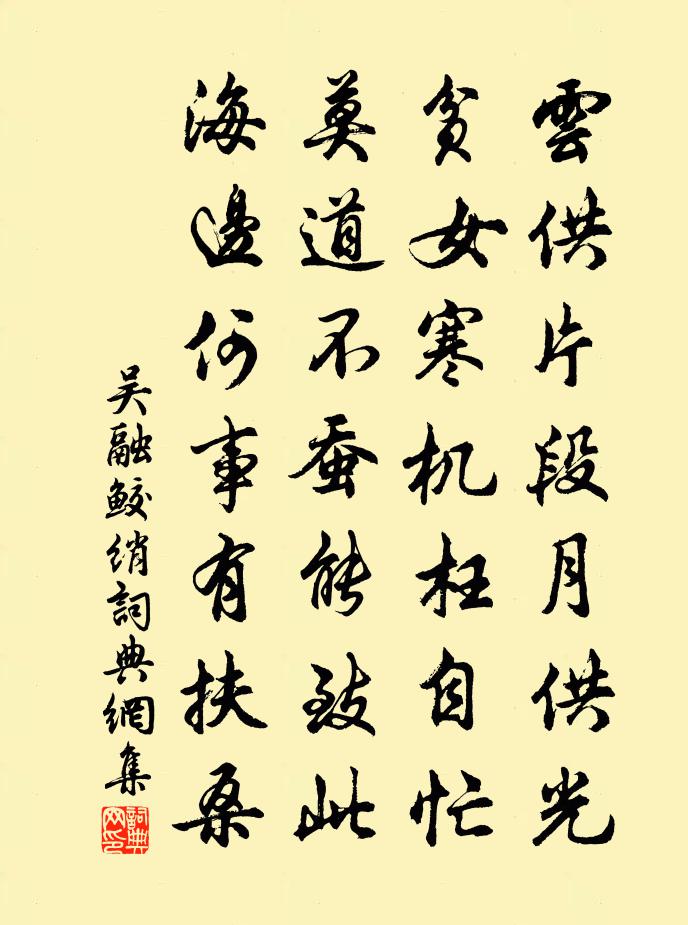 雲供片段月供光
貧女寒机枉自忙
莫道不蚕能致此
海邊何事有扶桑
吴融鲛绡詞典網集
詞典
网印